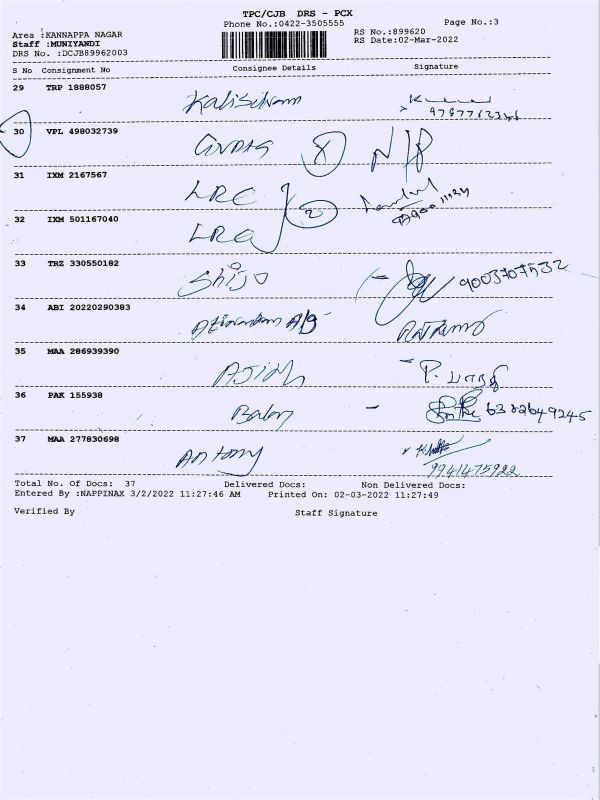 TPC/CJB DRS - PCX
Phone No.:0422-3505555
Page No.:3
Area :KANNAPPA NAGAR
RS No.:899620
Staff :MUNIYANDI
RS Date:02-Mar-2022
DRS No. :DCJB89962003
S No Consignment No Consignee Details Signature
29 TRP 1888057
30 VPL 498032739
31 IXM 2167567 LRC
2
32 IXM 501167040 LRC
33 TRZ 330550182 Shijo 9003707532
34 ABI 20220290383
35 MAA 286939390
36 PAK 155938 6382649245
37 MAA 277830698 Antony
9941475922
Total No. Of Docs: 37 Delivered Docs: Non Delivered Docs:
Entered By :NAPPINAX 3/2/2022 11:27:46 AM Printed On: 02-03-2022 11:27:49
Verified By Staff Signature